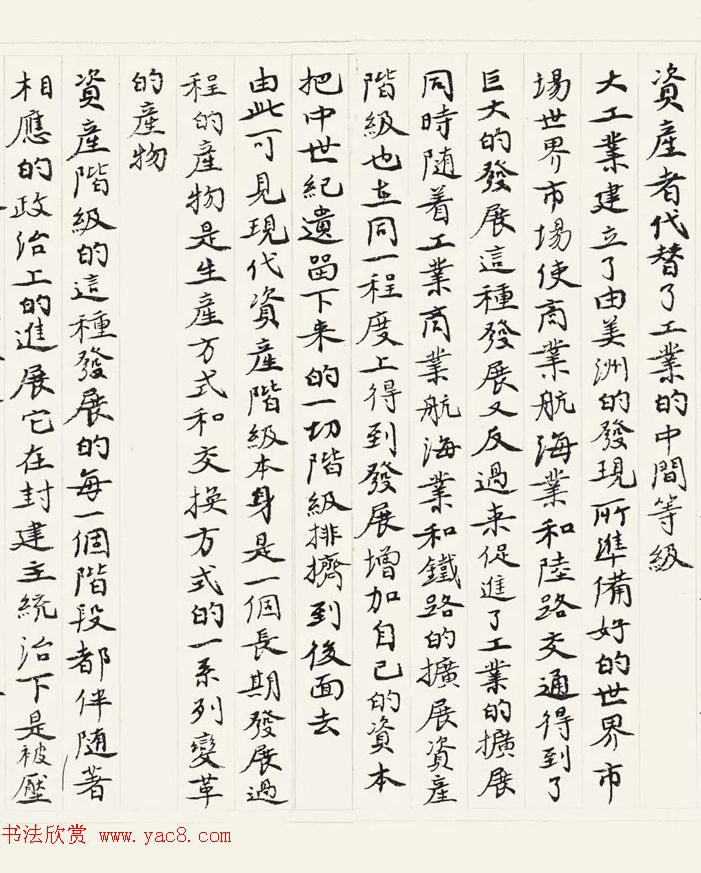 資產者代替了工業的中間等級
大工業建立了由美洲的發現所準備好的世界市
場世界市場使商業航海業和陸路交通得到了
巨大的發展這種發展又反過來促進了工業的擴展
同時隨着工業商業航海業和鐵路的擴展資產
階級也在同一程度上得到發展增加自己的資本
把中世紀遺留下来的一切階級排擠到後面去
由此可見現代資產階級本身是一個長期發展過
程的產物是生產方式和交換方式的一系列變革
的產物
資產階級的這種發展的每一個階段都伴随著
相應的政治上的進展它在封建主統治下是被壓
书法欣赏 www.yac8.com